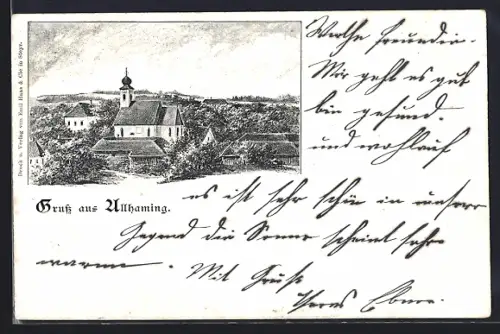 Druck u. Verlag von Emil Haas & Cie in Steyr.
Gruß aus Allhaming.
Werthe Freundin.
Mir geht es gut
bin gesund.
und wohlauf
es ist sehr schön in unserer
Gegend die Sonne scheint sehr
warm. Mit Gruß
Ebner.